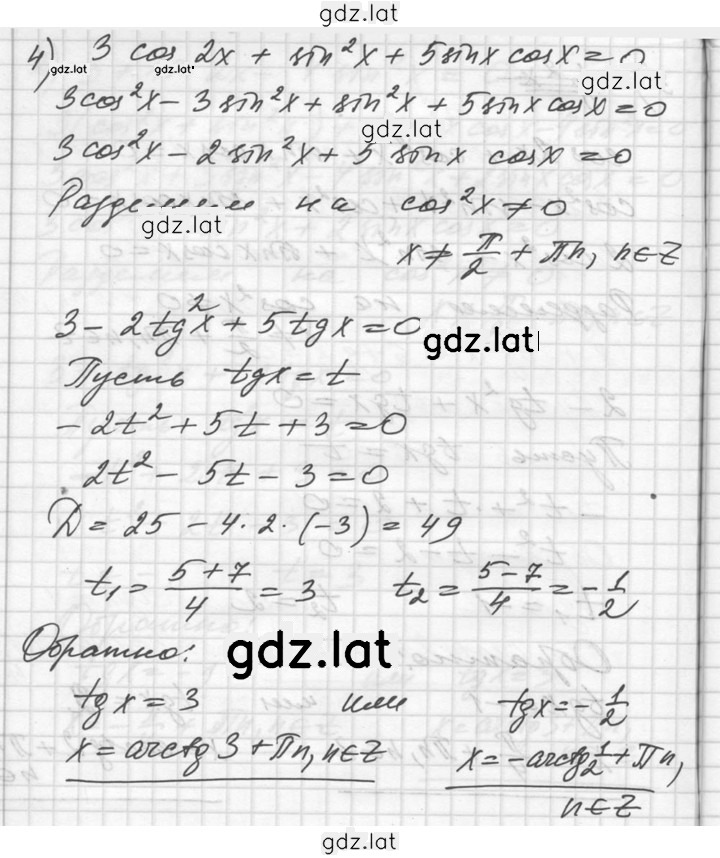 gdz.lat
4) 3 cos 2x + sin²x + 5sinx cosx = 0
gdz.lat gdz.lat gdz.lat
3cos²x − 3sin²x + sin²x + 5sinx cosx = 0
gdz.lat
3cos²x − 2sin²x + 5 sinx cosx = 0
Разделим на cos²x ≠ 0
gdz.lat
x ≠ π/2 + πn, n∈Z
3 − 2tg²x + 5tgx = 0
gdz.lat
Пусть tgx = t
−2t² + 5t + 3 = 0
2t² − 5t − 3 = 0
Д = 25 − 4·2·(−3) = 49
t₁ = (5+7)/4 = 3 t₂ = (5−7)/4 = −1/2
Обратно: gdz.lat
tgx = 3 или tgx = −1/2
x = arctg 3 + πn, n∈Z x = −arctg 1/2 + πn,
n∈Z
gdz.lat